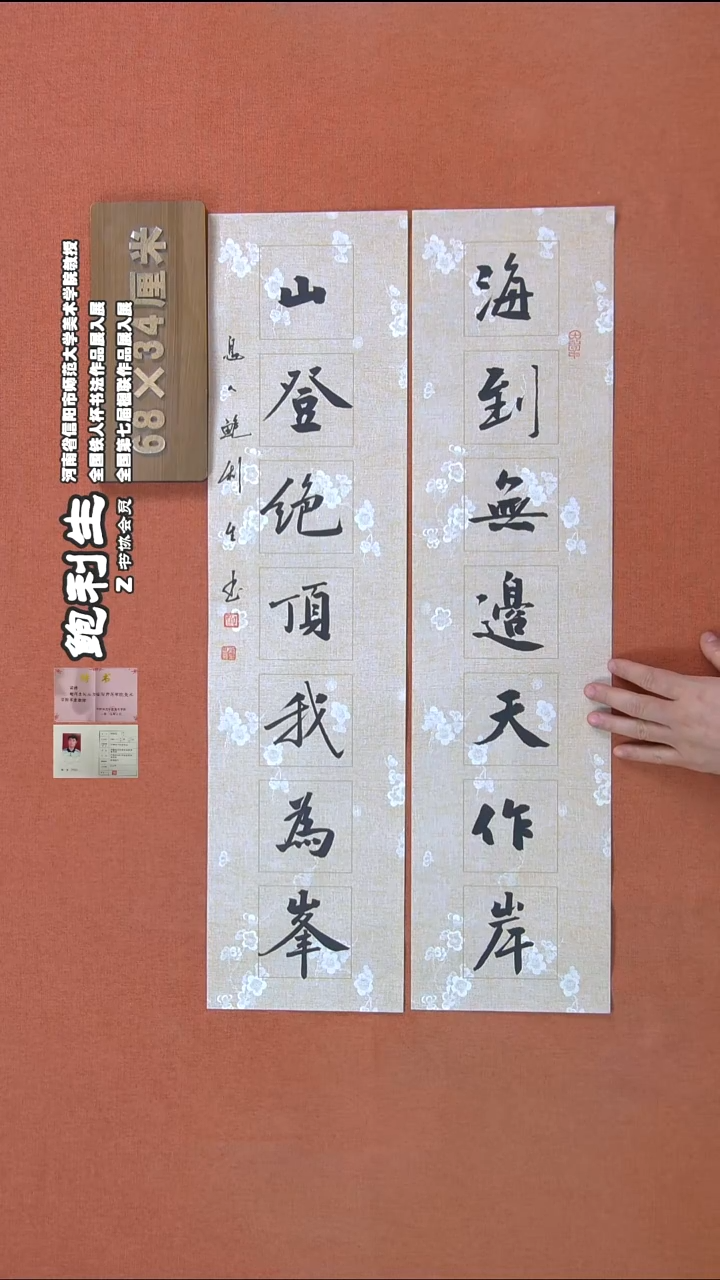 海到無邊天作岸
山登絶頂我為峯
鮑利生书
68×34厘米
鲍利生
Z书协会员
河南省信阳市师范大学美术学院教授
全国铁人杯书法作品展入展
全国第七届楹联作品展入展